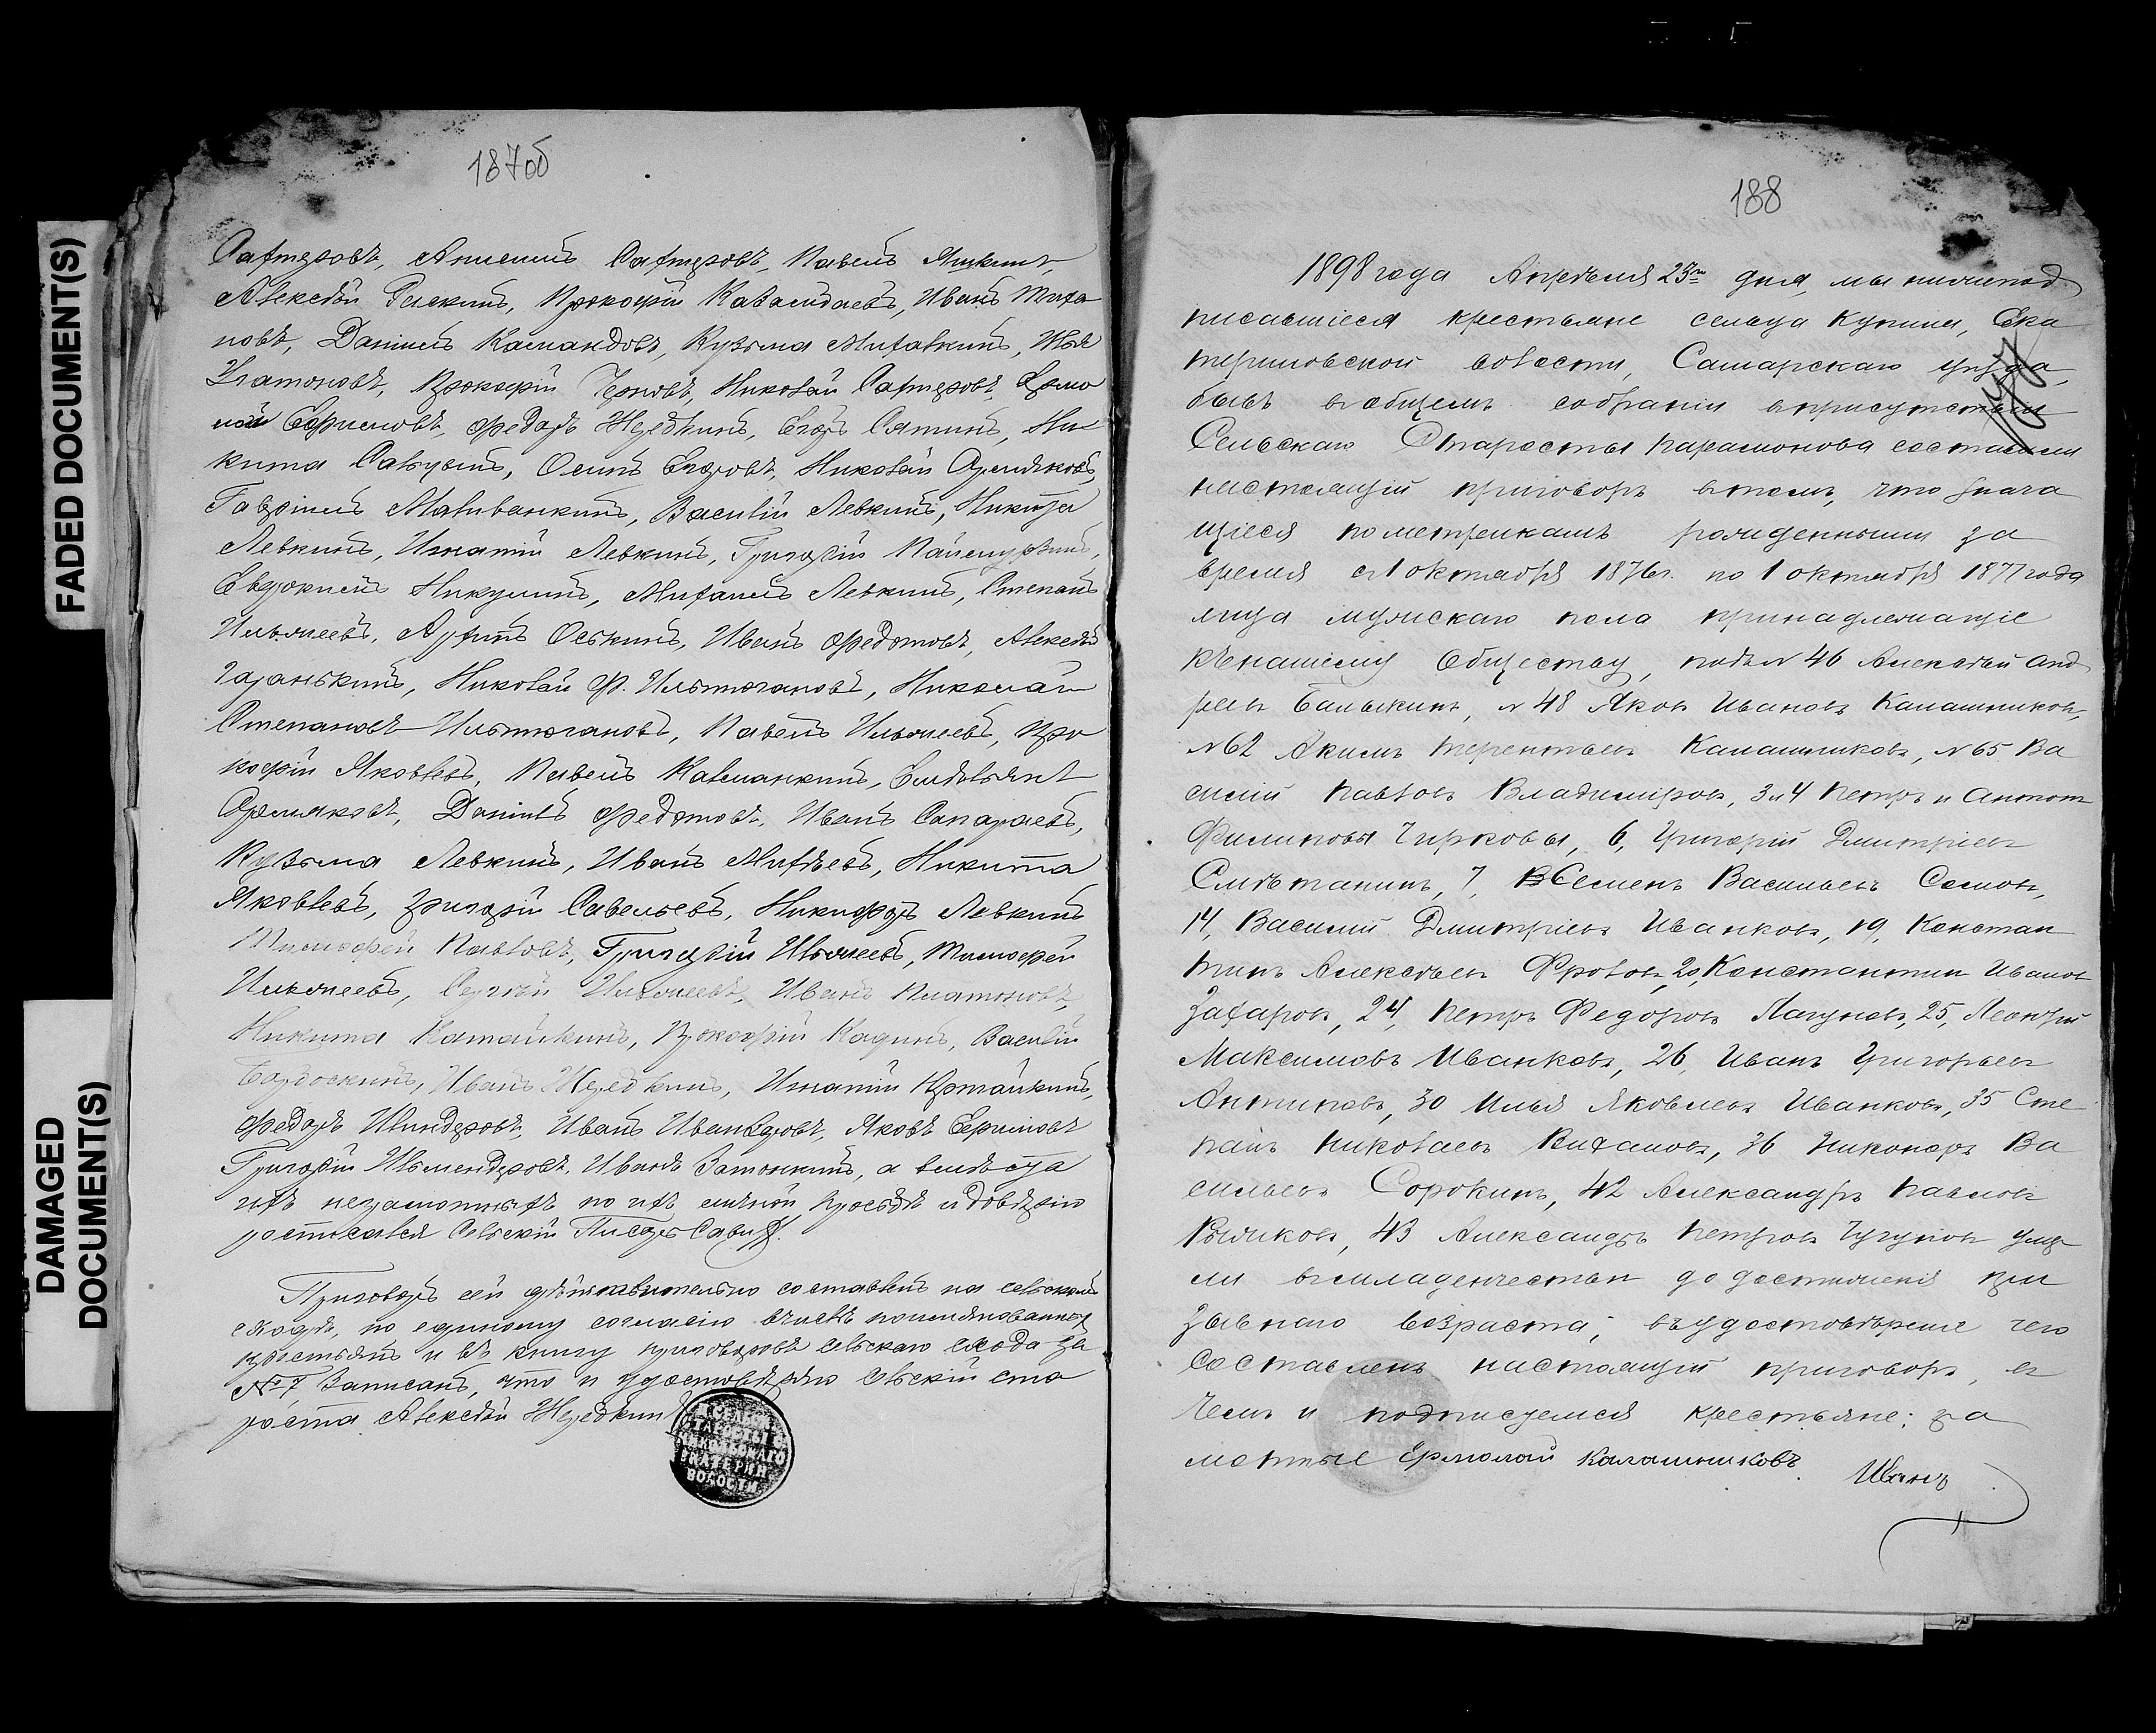 FADED DOCUMENT(S)
DAMAGED
DOCUMENT(S)
187об
Сафтеровъ, Сафтеровъ, Павелъ
Алексѣй Прокофій Иванъ
новъ, Данилъ Камандовъ, Кузьма Михалкинъ,
Платоновъ, Прокофій Черновъ, Николай Сафтеровъ,
Ефимовъ, Федоръ Жередкинъ, Егоръ Сятинъ, Ни
кита Осипъ Егоровъ, Николай Армяковъ,
Гаврилъ Василій Левкинъ, Никита
Левкинъ, Игнатій Левкинъ, Григорій
Евдокимъ Никулинъ, Михаилъ Левкинъ, Степанъ
Ильмеевъ, Оськинъ, Иванъ Федотовъ, Алексѣй
Гаранькинъ, Николай Ф. Ильтюгановъ, Николай
Степановъ Ильтюгановъ, Павелъ Ильмеевъ, Про
кофій Яковлевъ, Павелъ Емельянъ
Армяковъ, Данилъ Федотовъ, Иванъ
Кузьма Левкинъ, Иванъ Михѣевъ, Никита
Яковлевъ, Григорій Савельевъ, Никифоръ Левкинъ
Тимофей Павловъ, Григорій Ильмеевъ, Тимофей
Ильмеевъ, Сергѣй Ильмеевъ, Иванъ Платоновъ,
Никита Прокофій Кадинъ, Василій
Иванъ Жередкинъ, Игнатій
Федоръ Шиндеровъ, Иванъ Яковъ Ефимовъ
Григорій Иванъ Затонкинъ, а вмѣсто
ихъ неграмотныхъ по ихъ личной просьбѣ и довѣрію
росписался Сельскій Писарь
Приговоръ сей дѣйствительно составленъ на сельскомъ
сходѣ, по единому согласію всѣхъ поименованныхъ
крестьянъ и въ книгу приговоровъ сельскаго схода за
№ 7 записанъ, что и удостовѣряю Сельскій ста
роста Алексѣй Жередкинъ
ВОЛОСТИ
188
1898 года Апрѣля 23го дня, мы нижепод
писавшіеся крестьяне сельца Купина, Ека
териновской волости, Самарскаго уѣзда,
бывъ вобщемъ собраніи вприсутствіи
Сельскаго Старосты Парамонова составили
настоящій приговоръ втомъ, что знача
щіеся пометрикамъ рожденными за
время с1 октября 1876г. по 1 октября 1877 года
лица мужскаго пола принадлежащіе
кънашему Обществу, подъ № 46 Алексѣй Анд
реевъ Балыкинъ, № 48 Яковъ Ивановъ Калашниковъ,
№ 62 Акимъ Терентьевъ Калашниковъ, № 65 Ва
силій Павловъ Владиміровъ, 3 и 4 Петръ и Антонъ
Филиповы Чирковы, 6, Григорій Дмитріевъ
Смѣтанинъ, 7, Семенъ Васильевъ Сомовъ,
14, Василий Дмитріевъ Иванковъ, 19, Констан
тинъ Алексѣевъ Фроловъ, 20, Константин Иванов
Захаровъ, 24, Петръ Федоровъ Лагуновъ, 25, Леонтий
Максимовъ Иванковъ, 26, Иванъ Григорьевъ
Антиповъ, 30 Илья Яковлевъ Иванковъ, 35 Сте
панъ Николаевъ Вихановъ, 36 Никоноръ Ва
сильевъ Сорокинъ, 42 Александръ Павловъ
Рыжковъ, 43 Александръ Петровъ Чугуновъ умер
ли вмладенчествѣ до достиженія при
зывнаго возраста; въудостовѣреніе чего
составленъ настоящій приговоръ, въ
чемъ и подписуемся крестьяне: гра
мотные Ермолай Калашниковъ. Иванъ